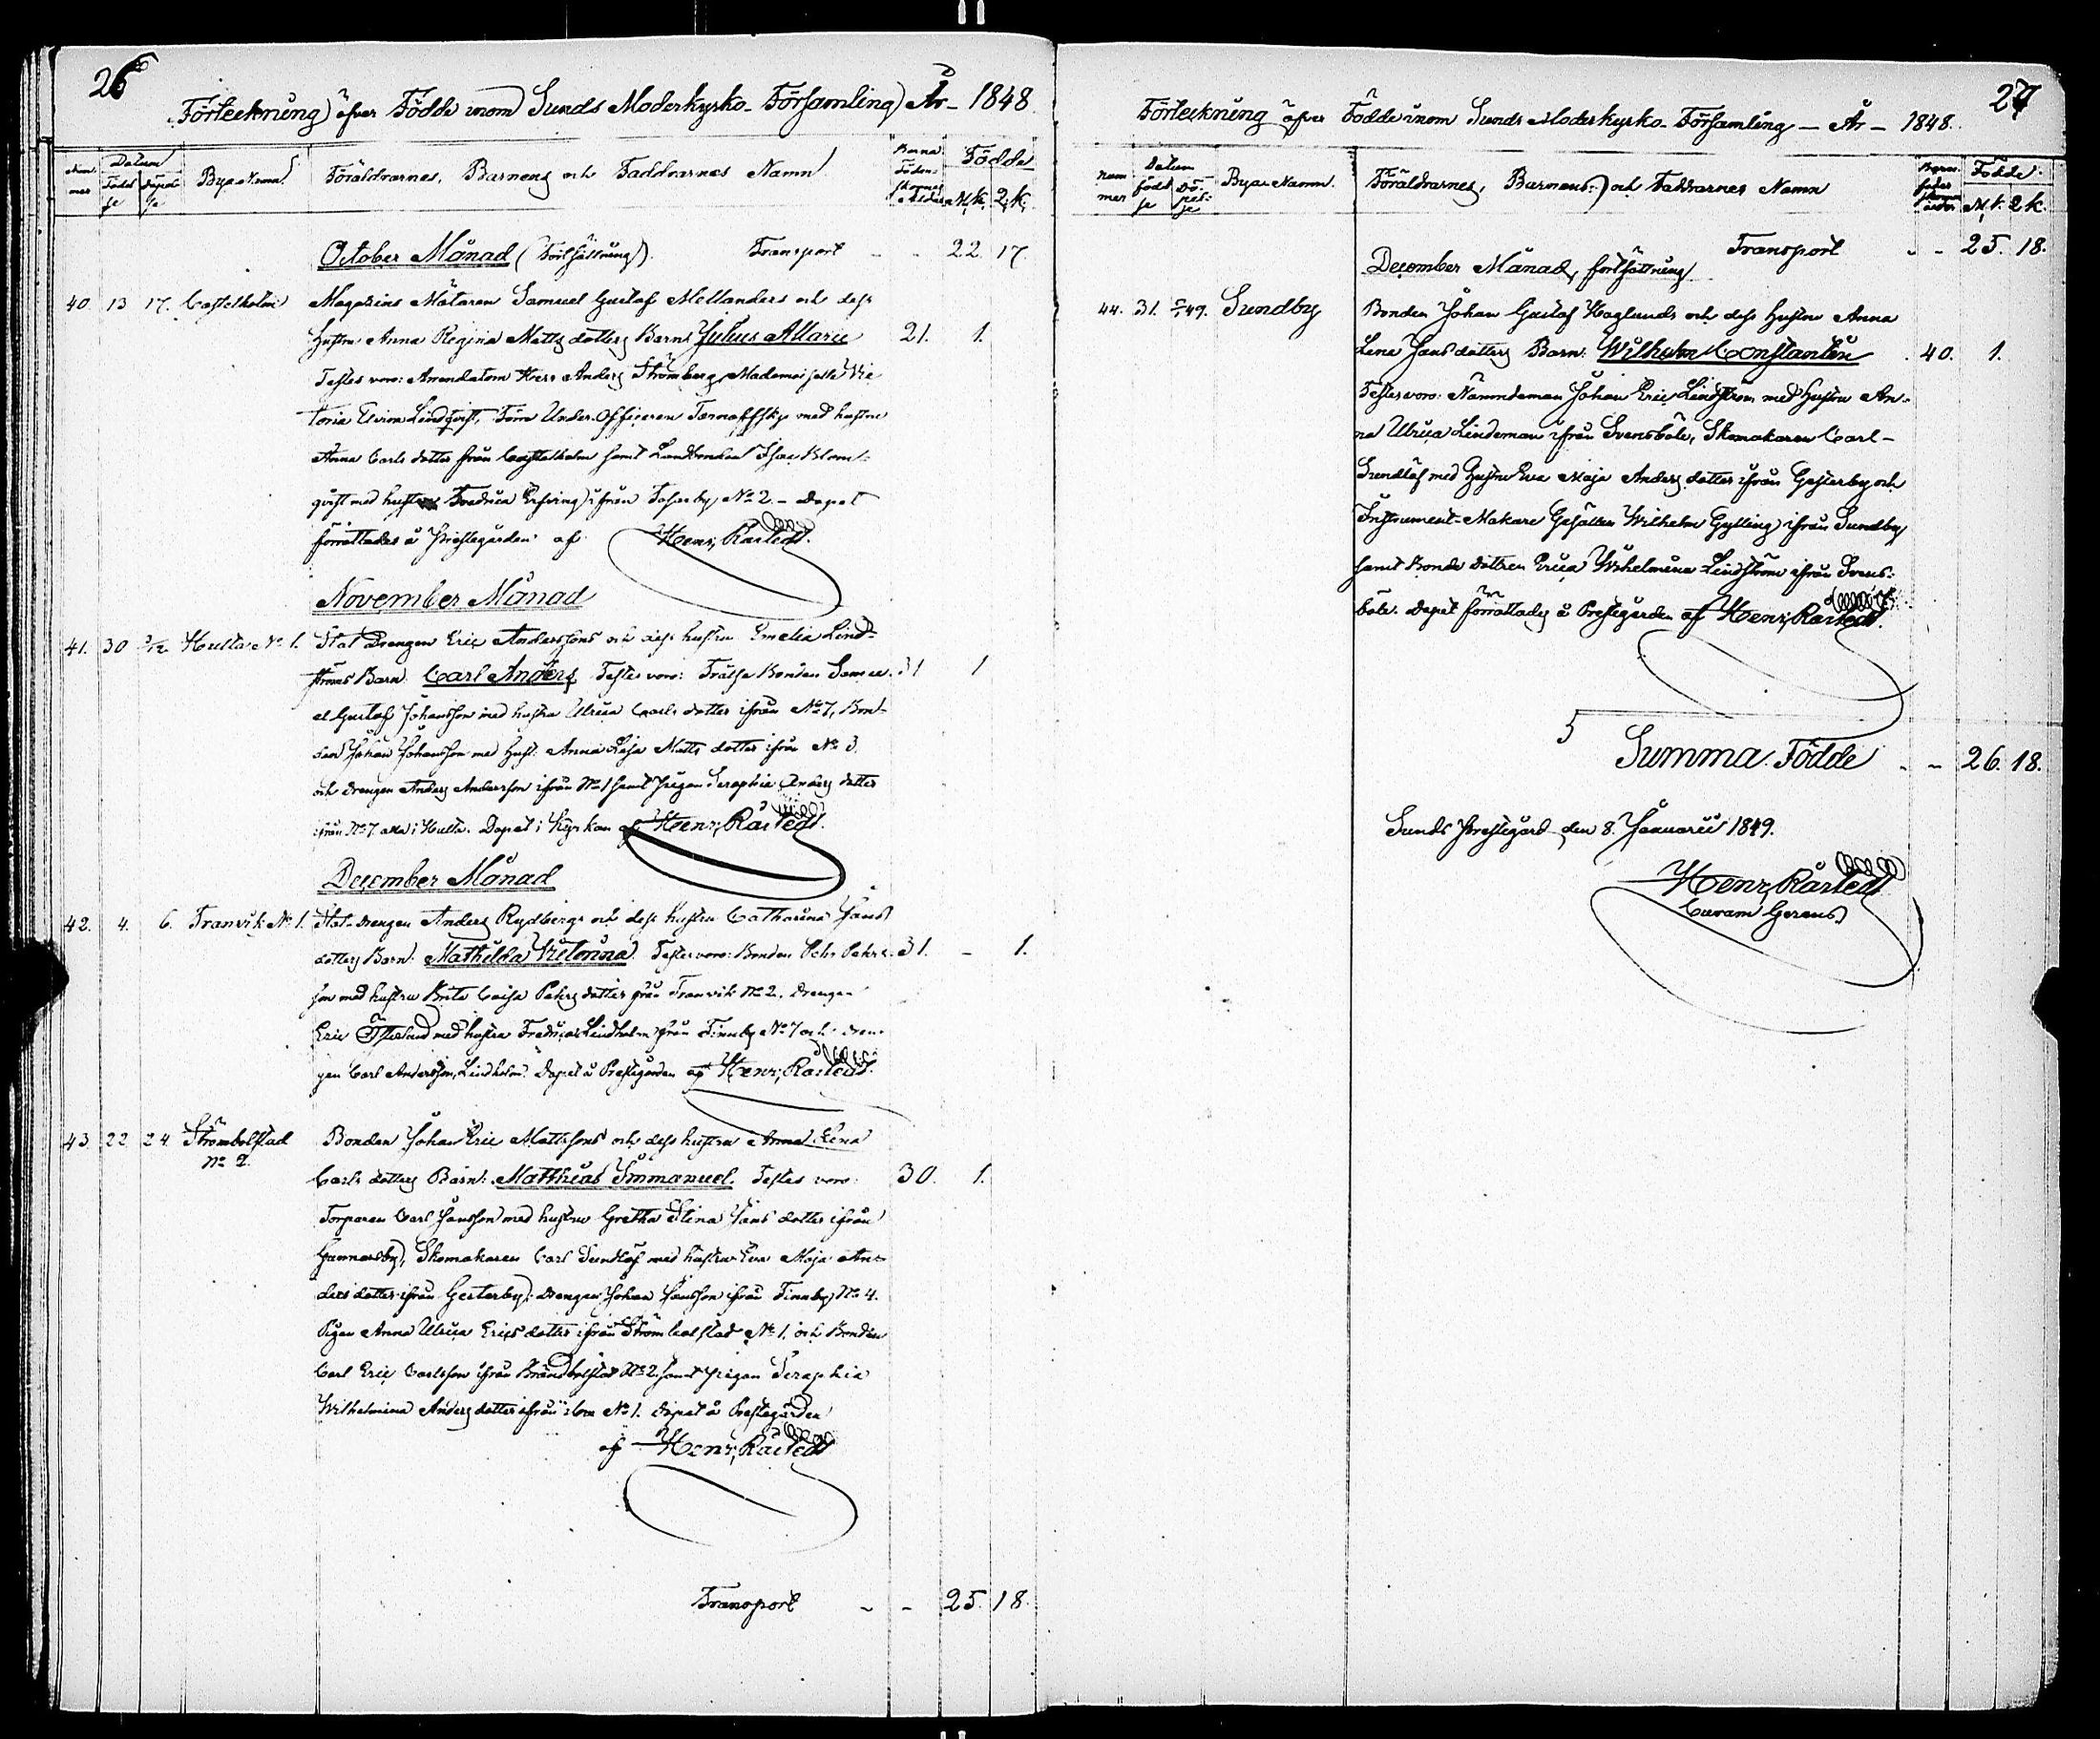 26
Förteckning öfver Födde inom Sunds Moderkyrko-Församling År - 1848
Num-mer
Datum
Födel-se
Döpel-se
Bya-Namn
Föräldrarnes, Barnens och Faddrarnes Namn
Födde
M.k. Q.k.
October Månad (Fortsättning). Transport - - 22. 17
40. 13 17. Castelholm Magasins Mätaren Samuel Gustaf Mellanders och dess
hustru Anna Regina Matts dotters Barn Julius Allarie 21. 1.
Testes voro: Arrendatorn Herr Anders Strömberg, Mademoiselle Vic
toria Lindqvist, Förre Under-Officeren med hustru
Anna Carls dotter från Castelholm samt Landbonden Isac Blom-
qvist med hustru Fredrica ifrån Tosarby No 2. - Döpet
förrättades å Prestegården af Henr. Råstedt.
November Månad
41. 30 3/12. Hulta No 1. Stat Drengen Eric Anderssons och dess hustru Emelia Lind-
ströms Barn. Carl Anders Testes voro: Frälse Bonden Samu- 31 1
el Gustaf Johansson med hustru Ulrica Carls dotter ifrån No 7, Bon-
den Johan Johansson med Hust: Anna Caja Matts dotter ifrån No 3.
och Drengen Anders Andersson ifrån No 1 samt Pigan Seraphia Anders dotter
ifrån No 7. alla i Hulta. Döpet i Kyrkan af Henr. Råstedt.
December Månad
42. 4. 6. Tranvik No 1. Stat-drengen Anders Rydbergs och dess hustru Catharina Jans
dotters Barn. Mathilda Victorina. Testes voro: Bonden Pehr Pehrs- 31. - 1.
son med hustru Brita Caisa Pehrs dotter från Tranvik No 2. Drengen
Eric Österlund med hustru Fredrica Lindholm från Finnby No 7 och dren-
gen Carl Andersson Lindholm. Döpet å Prestegården af Henr. Råstedt.
43. 22 24. Strömbolstad Bonden Johan Eric Mattssons och dess hustru Anna Lena
No 2.
Carls dotters Barn: Matthias Immanuel. Testes voro: 30. 1.
Torparen Carl Jansson med hustru Gretha Stina Jans dotter ifrån
Gunnarsby, Skomakaren Carl Sundlöf med hustru Eva Maja An-
ders dotter ifrån Gesterby, Drengen Johan Jansson ifrån Finnby No 4.
Pigan Anna Ulrica Erics dotter ifrån Strömbolstad No 1. och Bonden
Carl Eric Carlsson ifrån Brändbolstad No 2. samt Pigan Seraphia
Wilhelmina Anders dotter ifrån No 1. Döpet å Prestegården
af Henr. Råstedt
Transport - - 25. 18.
27
Förteckning öfver Födde inom Sunds Moderkyrko-Församling - År - 1848.
Num-mer
Datum
födel-se
Dö-pel-se
Bya-Namn.
Föräldrarnes, Barnens och Faddrarnes Namn
Födde
M.k. Q.k.
Transport - - 25. 18.
December Månad, fortsättning
44. 31. 49. Sundby Bonden Johan Gustaf Haglunds och dess Hustru Anna
Lena Jans dotters Barn: Wilhelm Constantin . 40. 1.
Testes voro: Nämndeman Johan Eric Lindström med Hustru An-
na Ulrica Lindeman ifrån Svensböle, Skomakaren Carl -
Sundlöf med Hustru Eva Maja Anders dotter ifrån Gesterby och
Instrument-Makare Gesällen Wilhelm Gylling ifrån Sundby
samt Bonde dottren Erica Wilhelmina Lindström ifrån Svens-
böle. Döpet förrättades å Prestegården af Henr. Råstedt.
Summa Födde - - 26. 18.
Sunds Prestegård den 8. Januarii 1849.
Henr. Råstedt
Curam Gerens